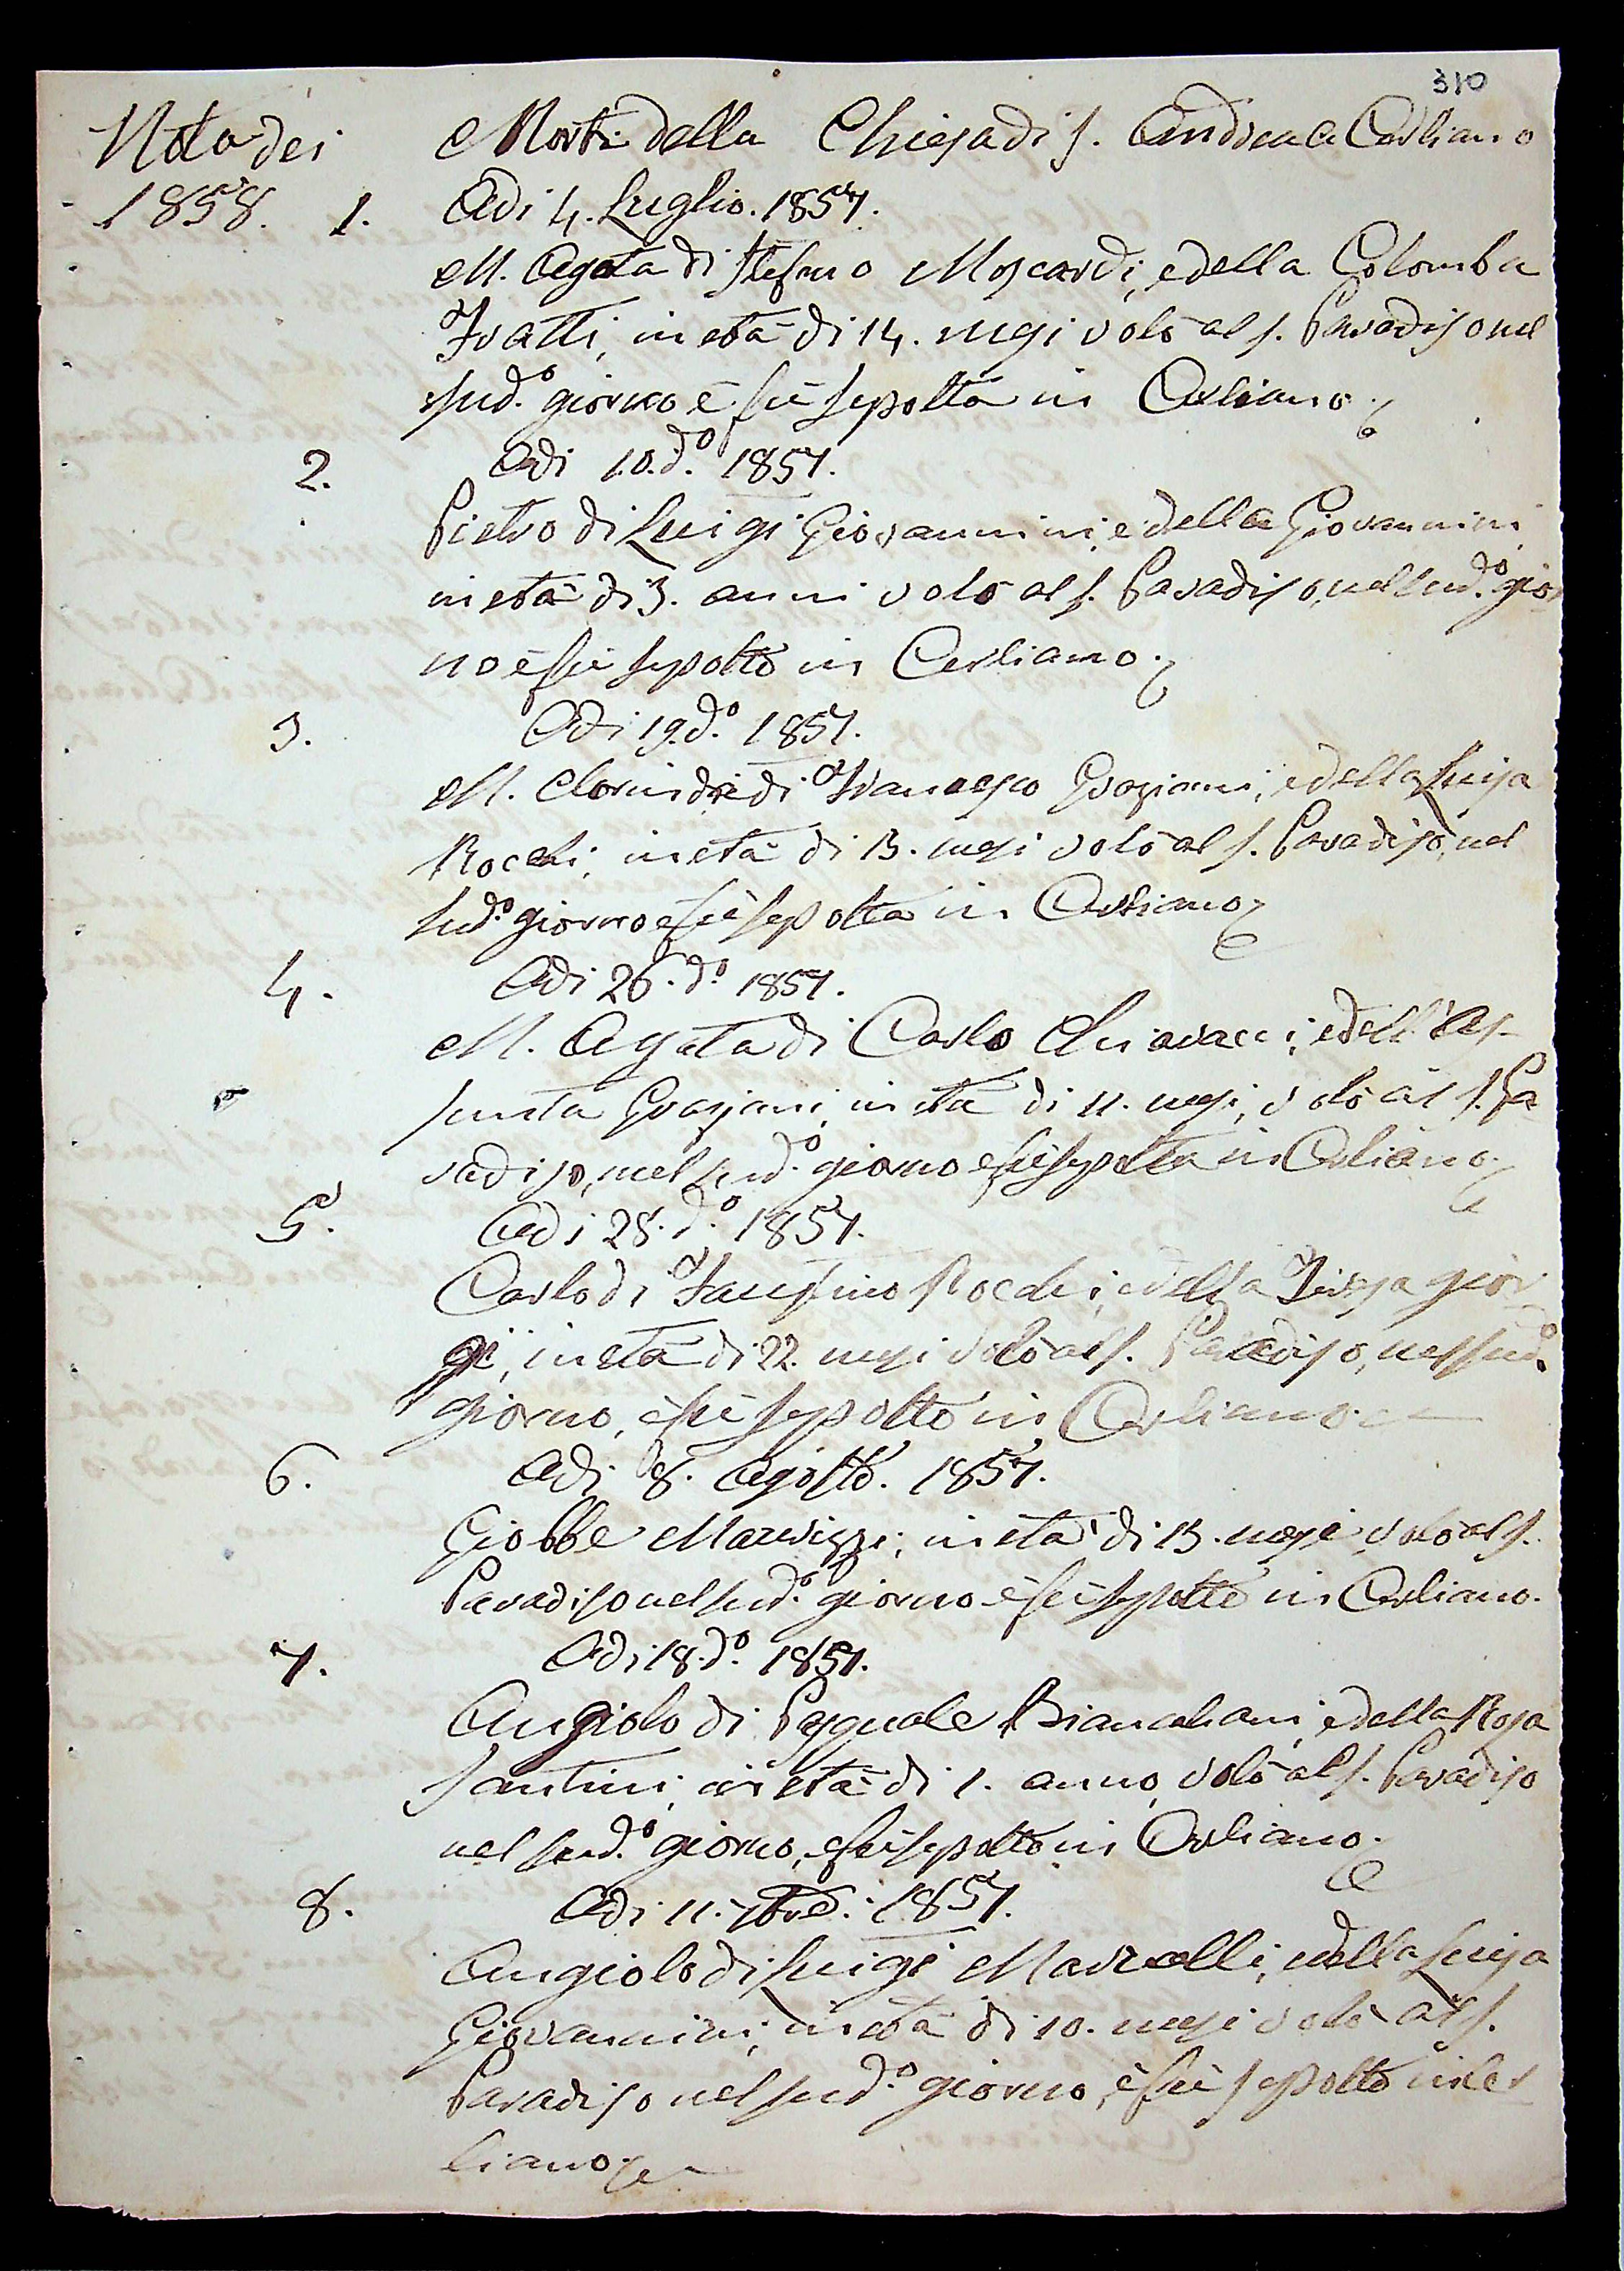 310
Nota dei Morti della Chiesa di S. Andrea a Cerliano
1858. 1. Adi 4. Luglio. 1857.
M. Agata di Stefano Moscardi, e della Colomba
Fratti, in età di 14. mesi volò al S. Paradiso nel
sud.º giorno è fù sepolta in Cerliano.
2. Adi 10. d.º 1857.
Pietro di Luigi Giovannini, e della Giovannini,
in età di 3. anni volò al S. Paradiso, nel sud.º gior
no è fù sepolto in Cerliano.
3. Adi 19. d.º 1857.
M. Clorinda di Francesco Graziani, e della Luisa
Rocchi, in età di 13. mesi volò al S. Paradiso, nel
sud.º giorno e fù sepolta in Cerliano
4. Adi 26. d.º 1857.
M. Agata di Carlo Chiavacci, e dell'As-
sunta Graziani, in età di 11. mesi, volò al S. Pa
radiso, nel sud.º giorno e fù sepolta in Cerliano.
5. Adi 28. d.º 1857.
Carlo di Faustino Rocchi, e della Teresa Gior
gi, in età di 22. mesi volò al S. Paradiso, nel sud.º
giorno, è fù sepolto in Cerliano.
6. Adi 8. Agosto. 1857.
Giobbe Maurizzi, in età di 13. mesi, volò al S.
Paradiso nel sud.º giorno è fù sepolto in Cerliano.
7. Adi 18. d.º 1857.
Angiolo di Pasquale Biancalani, e della Rosa
Santini, in età di 1. anno, volò al S. Paradiso
nel sud.º giorno, e fù sepolto in Cerliano.
8. Adi 11. 7bre. 1857.
Angiolo di Luigi Marcelli, e della Luisa
Giovannini, in età di 10. mesi volò al S.
Paradiso nel sud.º giorno, è fù sepolto in Cer
liano.